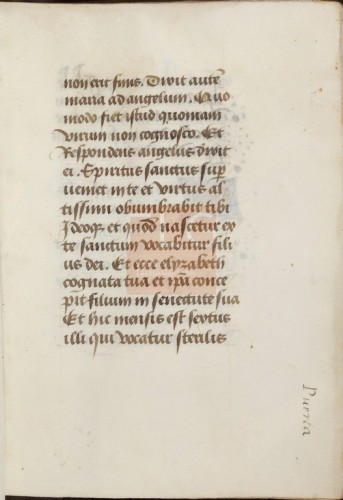 non erit finis. Dixit autē
maria ad angelum. Quo
modo fiet istud quoniam
virum non cognosco. Et
Respondens angelus dixit
ei. Spiritus sanctus supͬ
veniet in te et virtus al
tissimi obumbrabit tibi
Ideoqꝫ et quod nascetur ex
te sanctum vocabitur fili
us dei. Et ecce elyzabeth
cognata tua et ip̄a conce
pit filium in senectute sua
Et hic mensis est sextus
illi qui vocatur sterilis